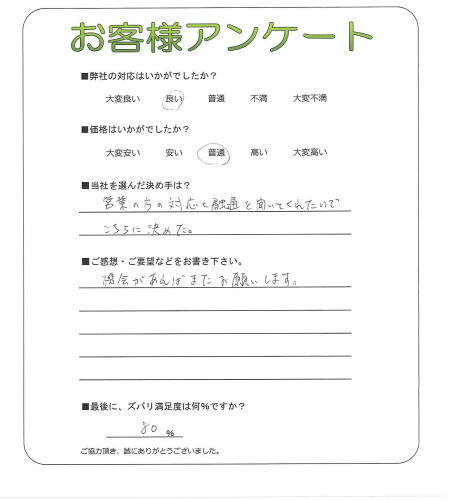 お客様アンケート
■弊社の対応はいかがでしたか？
大変良い 良い 普通 不満 大変不満
■価格はいかがでしたか？
大変安い 安い 普通 高い 大変高い
■当社を選んだ決め手は？
営業の方の対応と融通を聞いてくれたので
こちらに決めた。
■ご感想・ご要望などをお書き下さい。
機会があればまたお願いします。
■最後に、ズバリ満足度は何%ですか？
80 %
ご協力頂き、誠にありがとうございました。